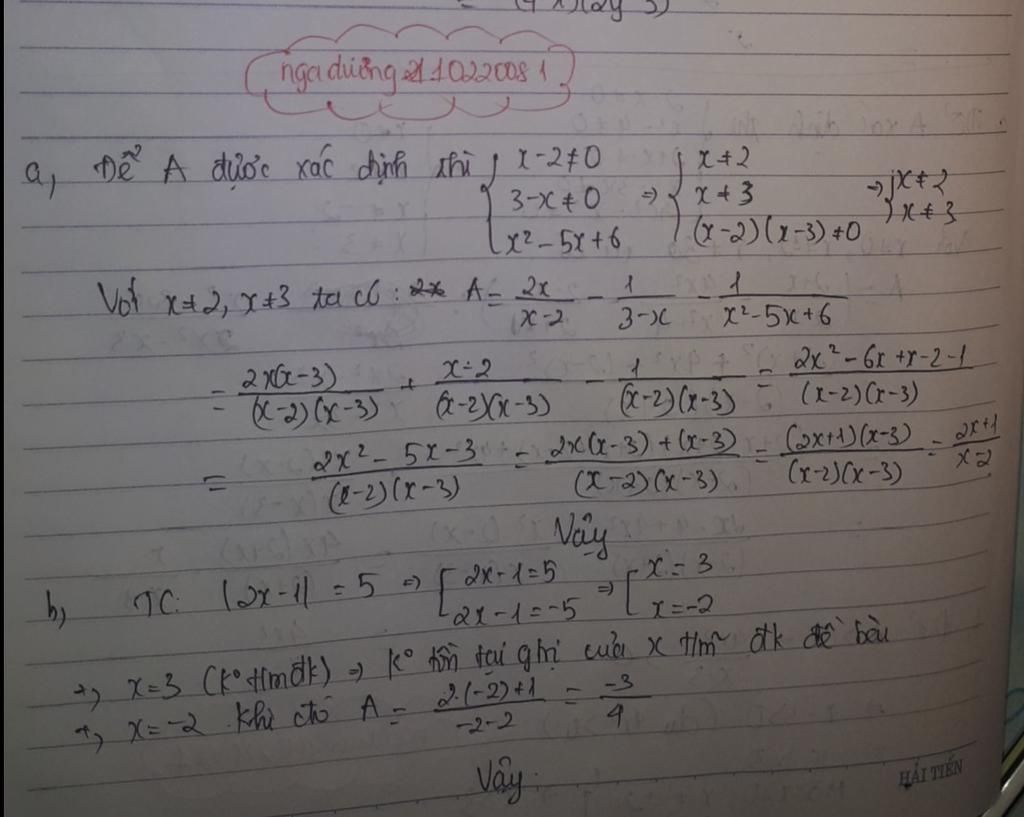 (2y-3)
ngadường2110220081
a, Để A được xác định thì { x-2≠0 ; 3-x≠0 ; x²-5x+6 => { x≠2 ; x≠3 ; (x-2)(x-3)≠0 => { x≠2 ; x≠3
Với x≠2, x≠3 ta có: A = 2x/(x-2) - 1/(3-x) - 1/(x²-5x+6)
= 2x(x-3)/(x-2)(x-3) + x-2/(x-2)(x-3) - 1/(x-2)(x-3) = 2x²-6x+x-2-1/(x-2)(x-3)
= 2x²-5x-3/(x-2)(x-3) = 2x(x-3)+(x-3)/(x-2)(x-3) = (2x+1)(x-3)/(x-2)(x-3) = 2x+1/x-2
Vậy
b, TC: |2x-1| = 5 => [ 2x-1=5 ; 2x-1=-5 => [ x=3 ; x=-2
+, x=3 (k° t/m đk) => k° tồn tại gtri của x t/m đk đề bài
+, x=-2 khi đó A = 2.(-2)+1/-2-2 = -3/4
Vậy.
HẢI TIẾN